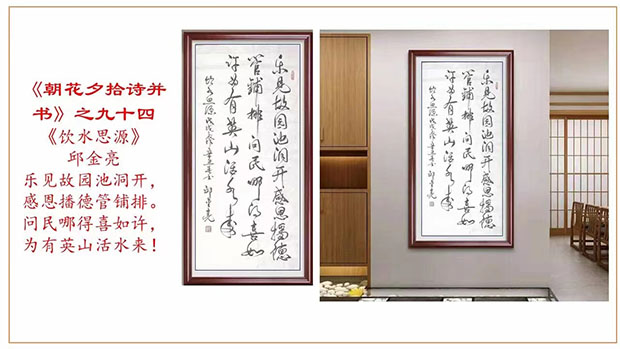 《朝花夕拾诗并
书》之九十四
《饮水思源》
邱金亮
乐见故园池洞开，
感恩播德管铺排。
问民哪得喜如许，
为有英山活水来！
乐见故园池洞开感恩播德
管铺排问民哪得喜如
许为有英山活水来
饮水思源 邱金亮
乐见故园池洞开感恩播德
管铺排问民哪得喜如
许为有英山活水来
饮水思源 邱金亮